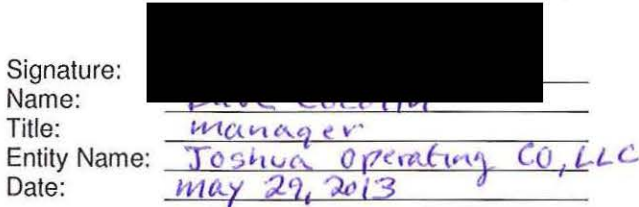 Signature:
Name:
Title: manager
Entity Name: Joshua Operating CO, LLC
Date: may 29, 2013